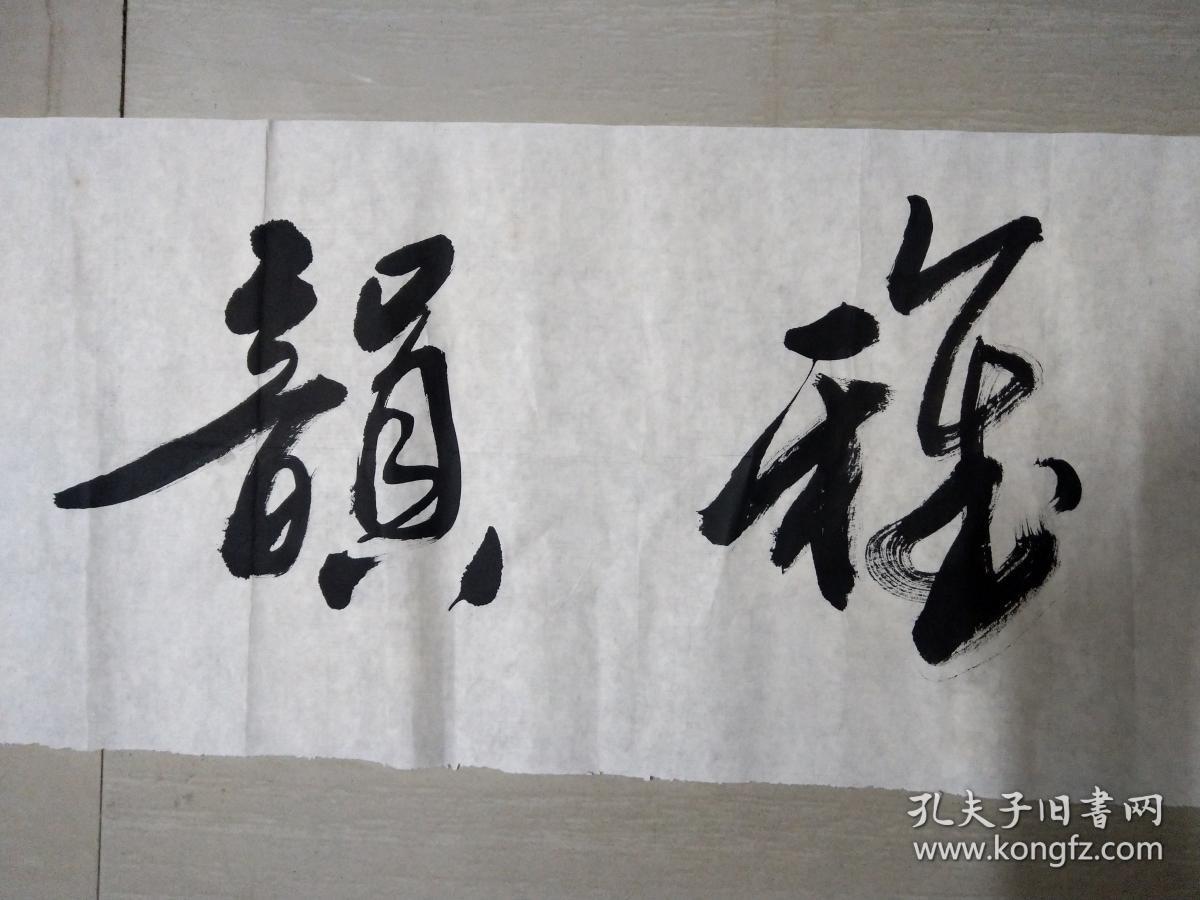 雅韻
孔夫子旧書网
www.kongfz.com